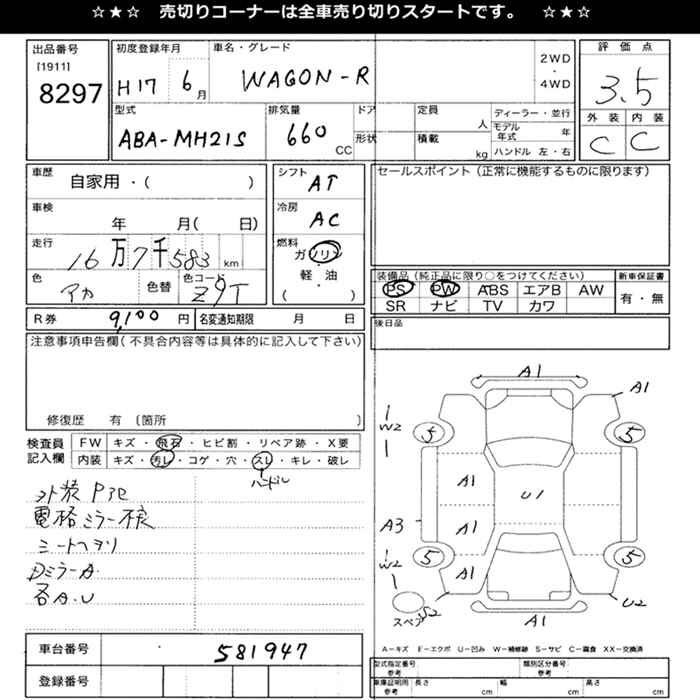 ☆★☆ 売切りコーナーは全車売り切りスタートです。 ☆★☆
出品番号 初度登録年月 車名・グレード 2WD・4WD 評価点
[1911] 8297 H17 6月 WAGON-R 3.5
型式 排気量 ドア 定員 ディーラー・並行 外装 内装
ABA-MH21S 660 CC 形状 人 モデル年式 年 C C
積載 kg ハンドル 左・右
車歴 シフト セールスポイント (正常に機能するものに限ります)
自家用・( ) AT
車検 冷房
年 月( 日) AC
走行 燃料
16万7千583km ガソリン
色 色替 色コード 軽・油 装備品 (純正品に限り○をつけてください) 新車保証書
アカ Z9T ( ) PS PW ABS エアB AW 有・無
SR ナビ TV カワ
R券 9,100円 名変通知期限 月 日 後日品
注意事項申告欄 (不具合内容等は具体的に記入して下さい)
修復歴 有 〔箇所 〕
検査員記入欄 FW キズ・飛石・ヒビ割・リペア跡・X要
内装 キズ・汚レ・コゲ・穴・スレ・キレ・破レ
ハンドル
外装
電格ミラー不良
シートヘタリ
DミラーA
各A.U
A1
A1
W2 5 5
A1 U1
A3 A1
W2 5 5
A1
S2 U2
スペア A1
A-キズ E-エクボ U-凹み W-補修跡 S-サビ C-腐食 XX-交換済
車台番号 581947 型式指定番号 参考 類別区分番号 参考
登録番号 車庫証明用 参考 長さ cm 幅 cm 高さ cm